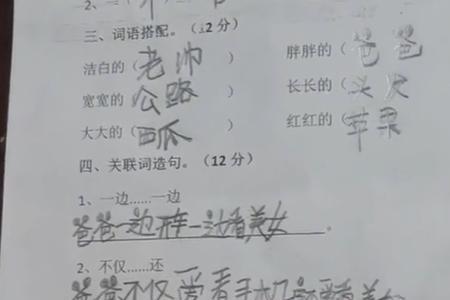 2、一（
三、词语搭配。（12分）
洁白的（老师） 胖胖的（爸爸
宽宽的（公路） 长长的（头发
大大的（西瓜） 红红的（苹果
四、关联词造句。（12分）
1、一边……一边
爸爸一边开车一边看美女。
2、不仅……还
爸爸不仅爱看手机